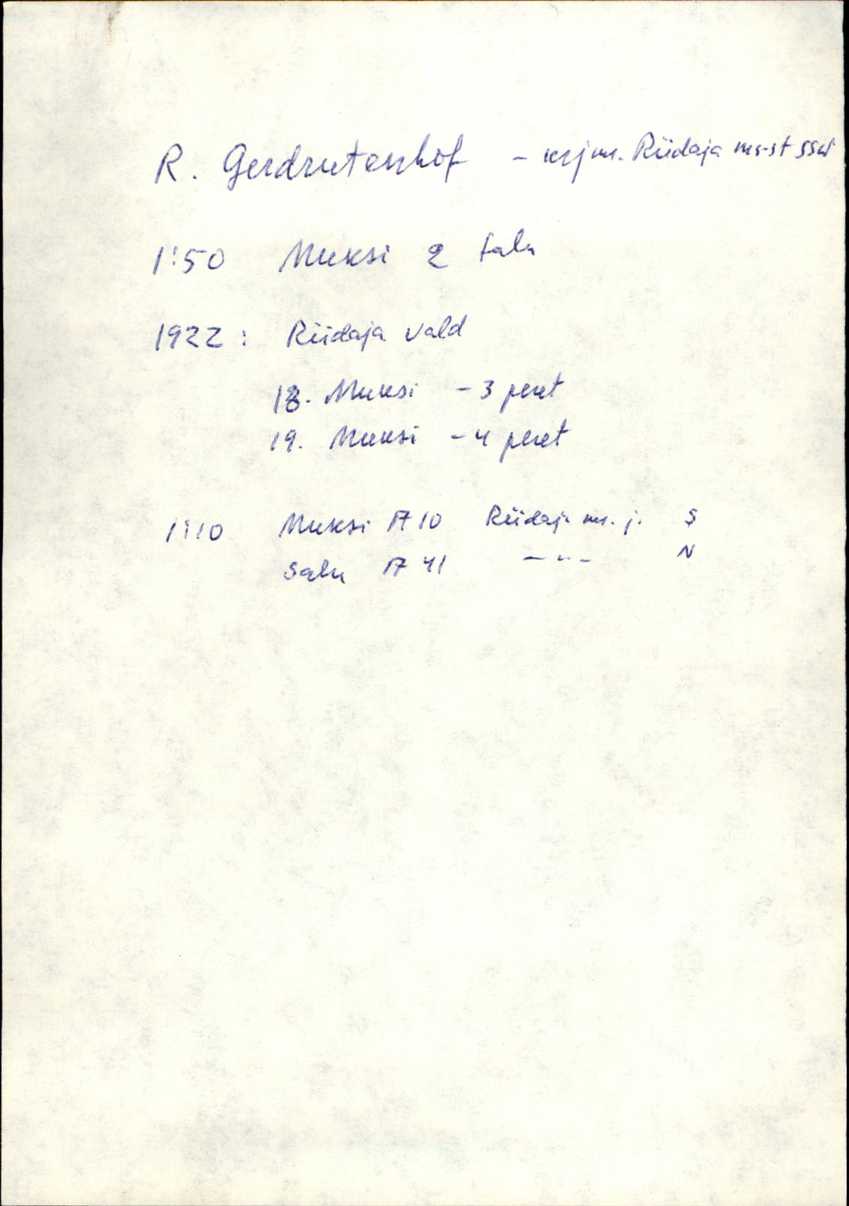 R. Gerdrutenhof – krjm. Riidaja ms-st SSW
1:50 Muksi 2 talu
1922: Riidaja vald
18. Muksi – 3 peret
19. Muksi – 4 peret
1:10 Muksi A 10 Riidaja ms. j. S
Salu A 41 –"– N